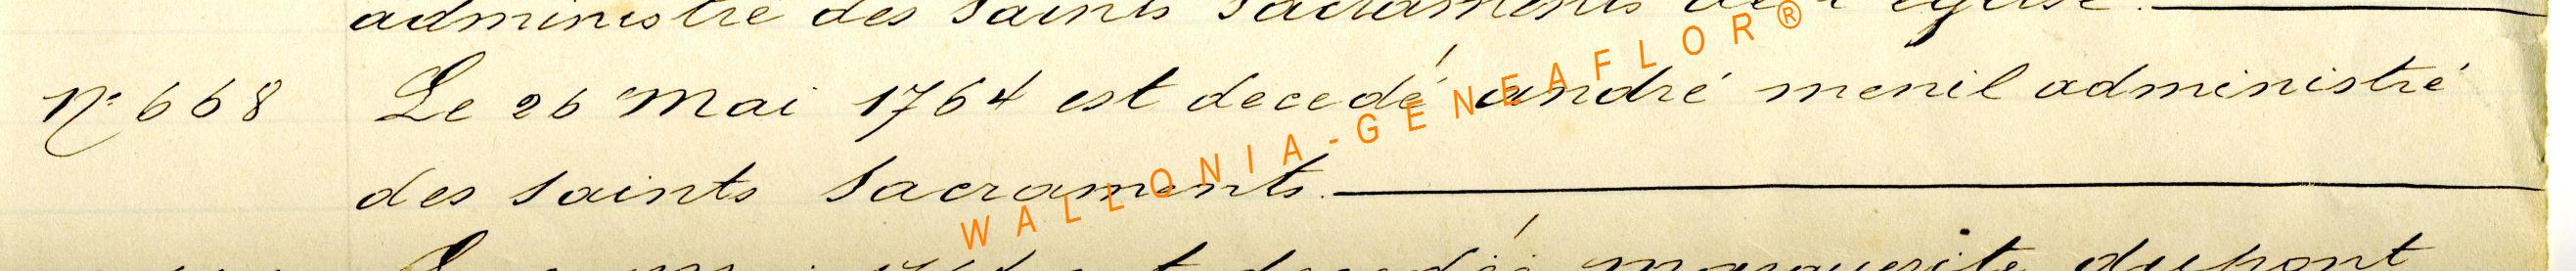 administré des saints sacraments de l'église.
N° 668 Le 26 Mai 1764 est decedé andré menil administré
des saints sacraments.
WALLONIA-GENEAFLOR®
1764 est decedée marguerite dupont